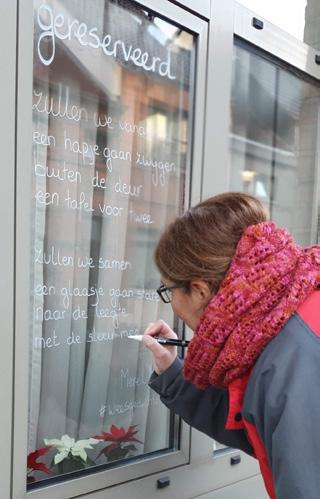 gereserveerd
zullen we vana
een hapje gaan zwijgen
buiten de deur
een tafel voor twee
zullen we samen
een glaasje gaan staren
naar de leegte
met de
Merel